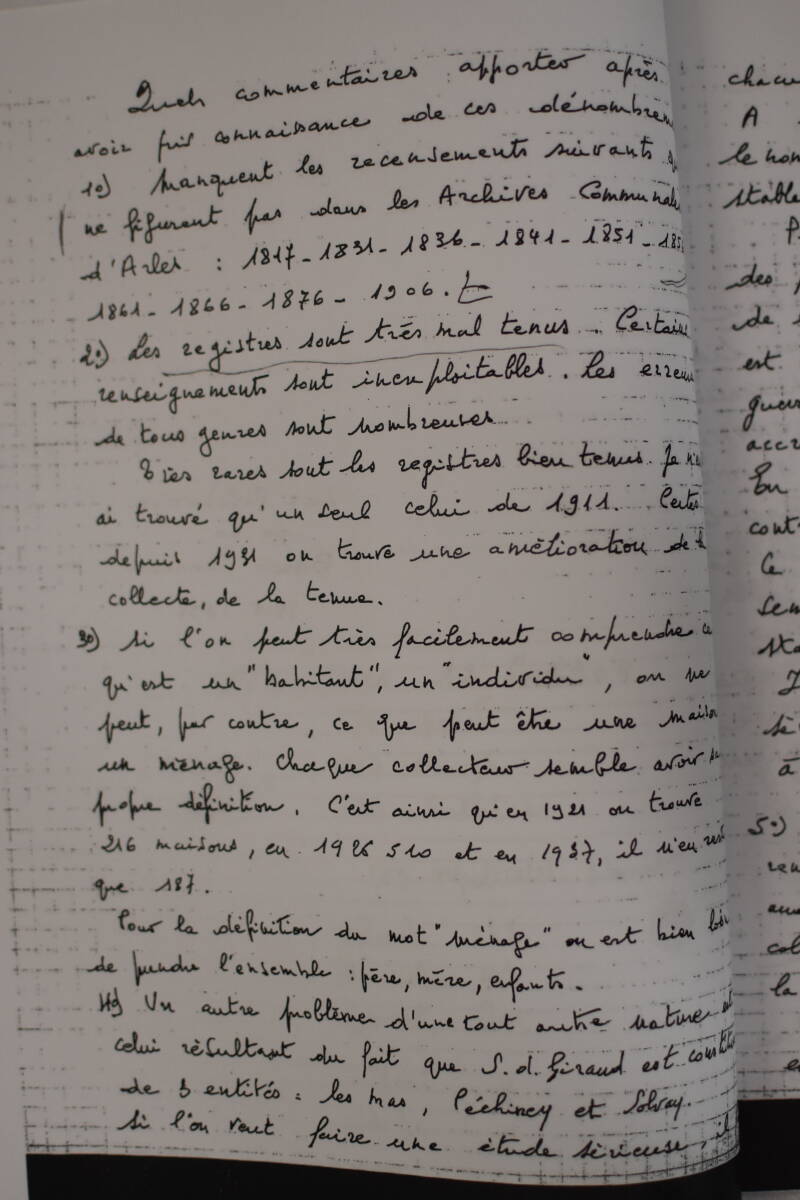 Quels commentaires apporter après
avoir pris connaissance de ces dénombrem
1o) Manquent les recensements suivants
ne figurant pas dans les Archives Communal
d'Arles : 1817-1831-1836-1841-1851-185
1861-1866-1876-1906.
2o) Les registres sont très mal tenus. Certains
renseignements sont inexploitables. Les erreu
de tous genres sont nombreuses
Très rares sont les registres bien tenus. Je n'
ai trouvé qu'un seul celui de 1911. Certes
depuis 1931 on trouve une amélioration de
collecte, de la tenue.
3o) Si l'on peut très facilement comprendre c
qu'est un "habitant", un "individu", on ne
peut, par contre, ce que peut être une maiso
un ménage. Chaque collecteur semble avoir
propre définition. C'est ainsi qu'en 1921 on trouve
216 maisons, en 1926 510 et en 1937, il n'en res
que 187.
Pour la définition du mot "ménage" on est bien
de prendre l'ensemble : père, mère, enfants.
4o) Un autre problème d'une tout autre nature
celui résultant du fait que S.d. Giraud est constit
de 3 entités : les mas, Péchiney et Solvay.
Si l'on veut faire une étude sérieuse, il
chacu
A
le nom
stable
P
des
de
est
guer
accr
En
cont
Ce
sem
sta
J
si
à
5o)
ren
au
col
la
e